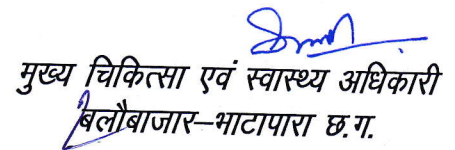 मुख्य चिकित्सा एवं स्वास्थ्य अधिकारी
बलौबाजार–भाटापारा छ.ग.